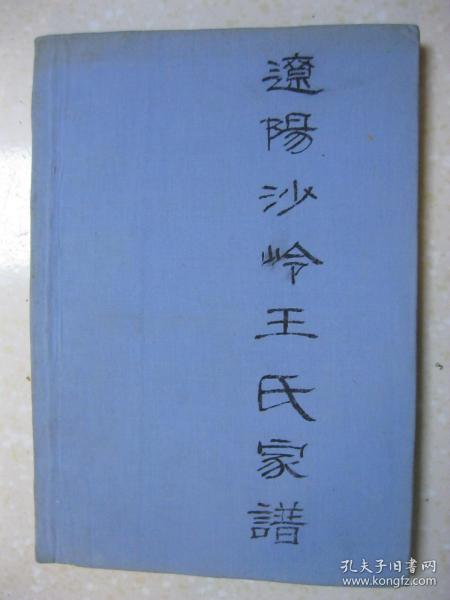 遼陽沙岭王氏家譜
孔夫子旧书网
www.kongfz.com